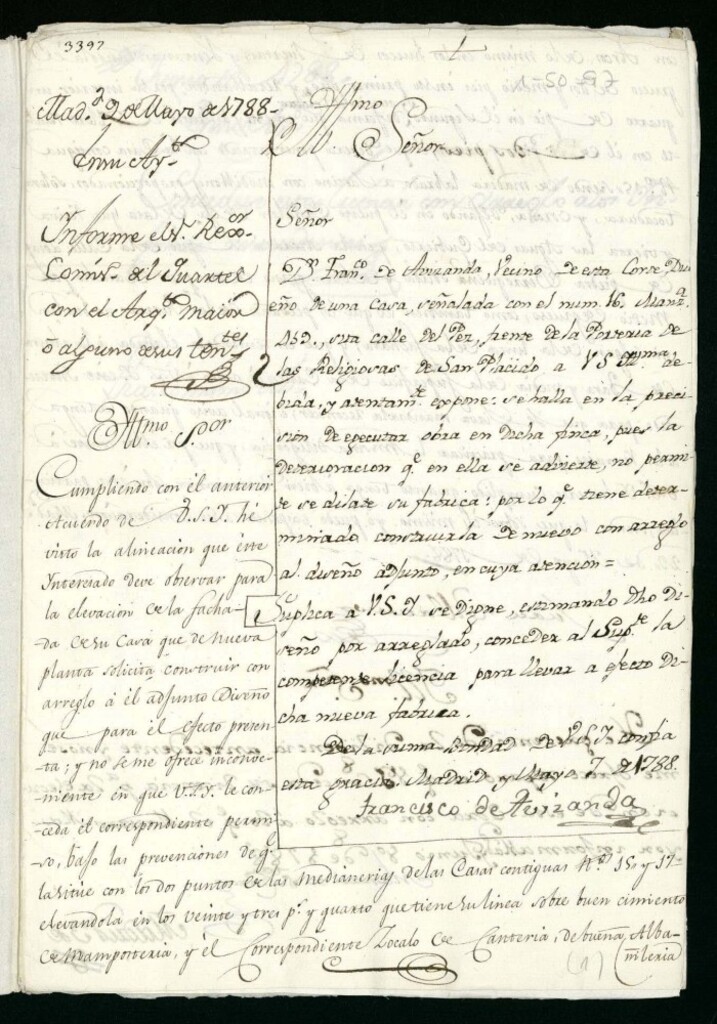 3397
1-50-97
Mad.d 9 de Mayo de 1788-
En su Ay.to
Informe el S.r Rex.or
Comis.o del Quartel
con el Arq.to maior
ò alguno de sus ten.tes
Yllmo
Señor
Señor
D.n Fran.co de Avizanda, Vecino de esta Corte Du
eño de una casa, señalada con el num. 16. Manz.a
sita calle del Pez, frente de la Porteria de
las Religiosas de San Placido a V S Yllma de-
bida, y atentam.te expone: se halla en la preci-
sion de egecutar obra en dicha finca, pues la
deterioracion q.e en ella se advierte, no permi-
te se dilate su fabrica: por lo q.e tiene deter-
minado construirla de nuevo con arreglo
al diseño adjunto, en cuya atencion=
Suplica à V.S.I. se digne, estimando dho di-
seño por arreglado, conceder al Sup.te la
competente licencia para llevar a efecto di-
cha nueva fabrica.
De la suma bondad de V.S.I confia
esta gracia. Madrid y Mayo 7 de 1788.
Francisco de Avizanda
Yllmo S.or
Cumpliendo con él anterior
Acuerdo de V.S.I. hé
visto la alineacion que éste
Interesado deve observar para
la elevacion de la facha-
da de su Casa que de nueva
planta solicita construir con
arreglo á él adjunto Diseño
que para él efecto presen-
ta; y no se me ofrece inconve-
niente en que V.S.I. le con-
ceda él correspondiente permi-
so, bajo las prevenciones de q.e
la sitúe con los dos puntos de las Medianerias de las Casas contiguas N.os 15, y 17-
elevandola en los veinte y tres p.s y quarto que tiene su linea sobre buen cimiento
de Mamposteria, y él Correspondiente Zocalo de Canteria, de buena Alba-
ñileria
(1)